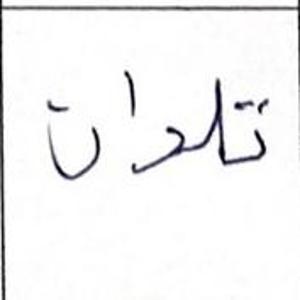 تلدان